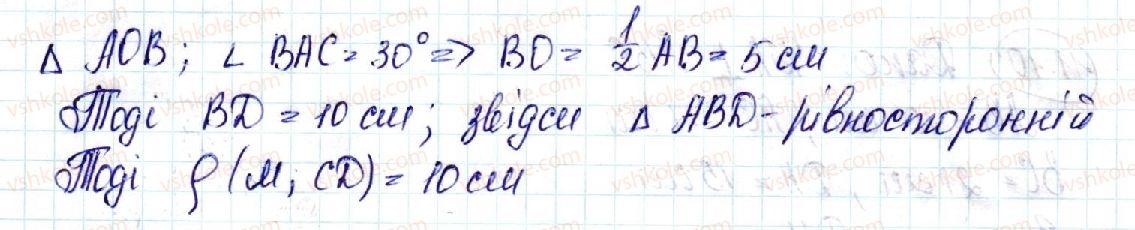 Δ AOB; ∠ BAC = 30° => BO = 1/2 AB = 5 см
Тоді BD = 10 см; звідси Δ ABD - рівносторонній
Тоді ρ (M; CD) = 10 см